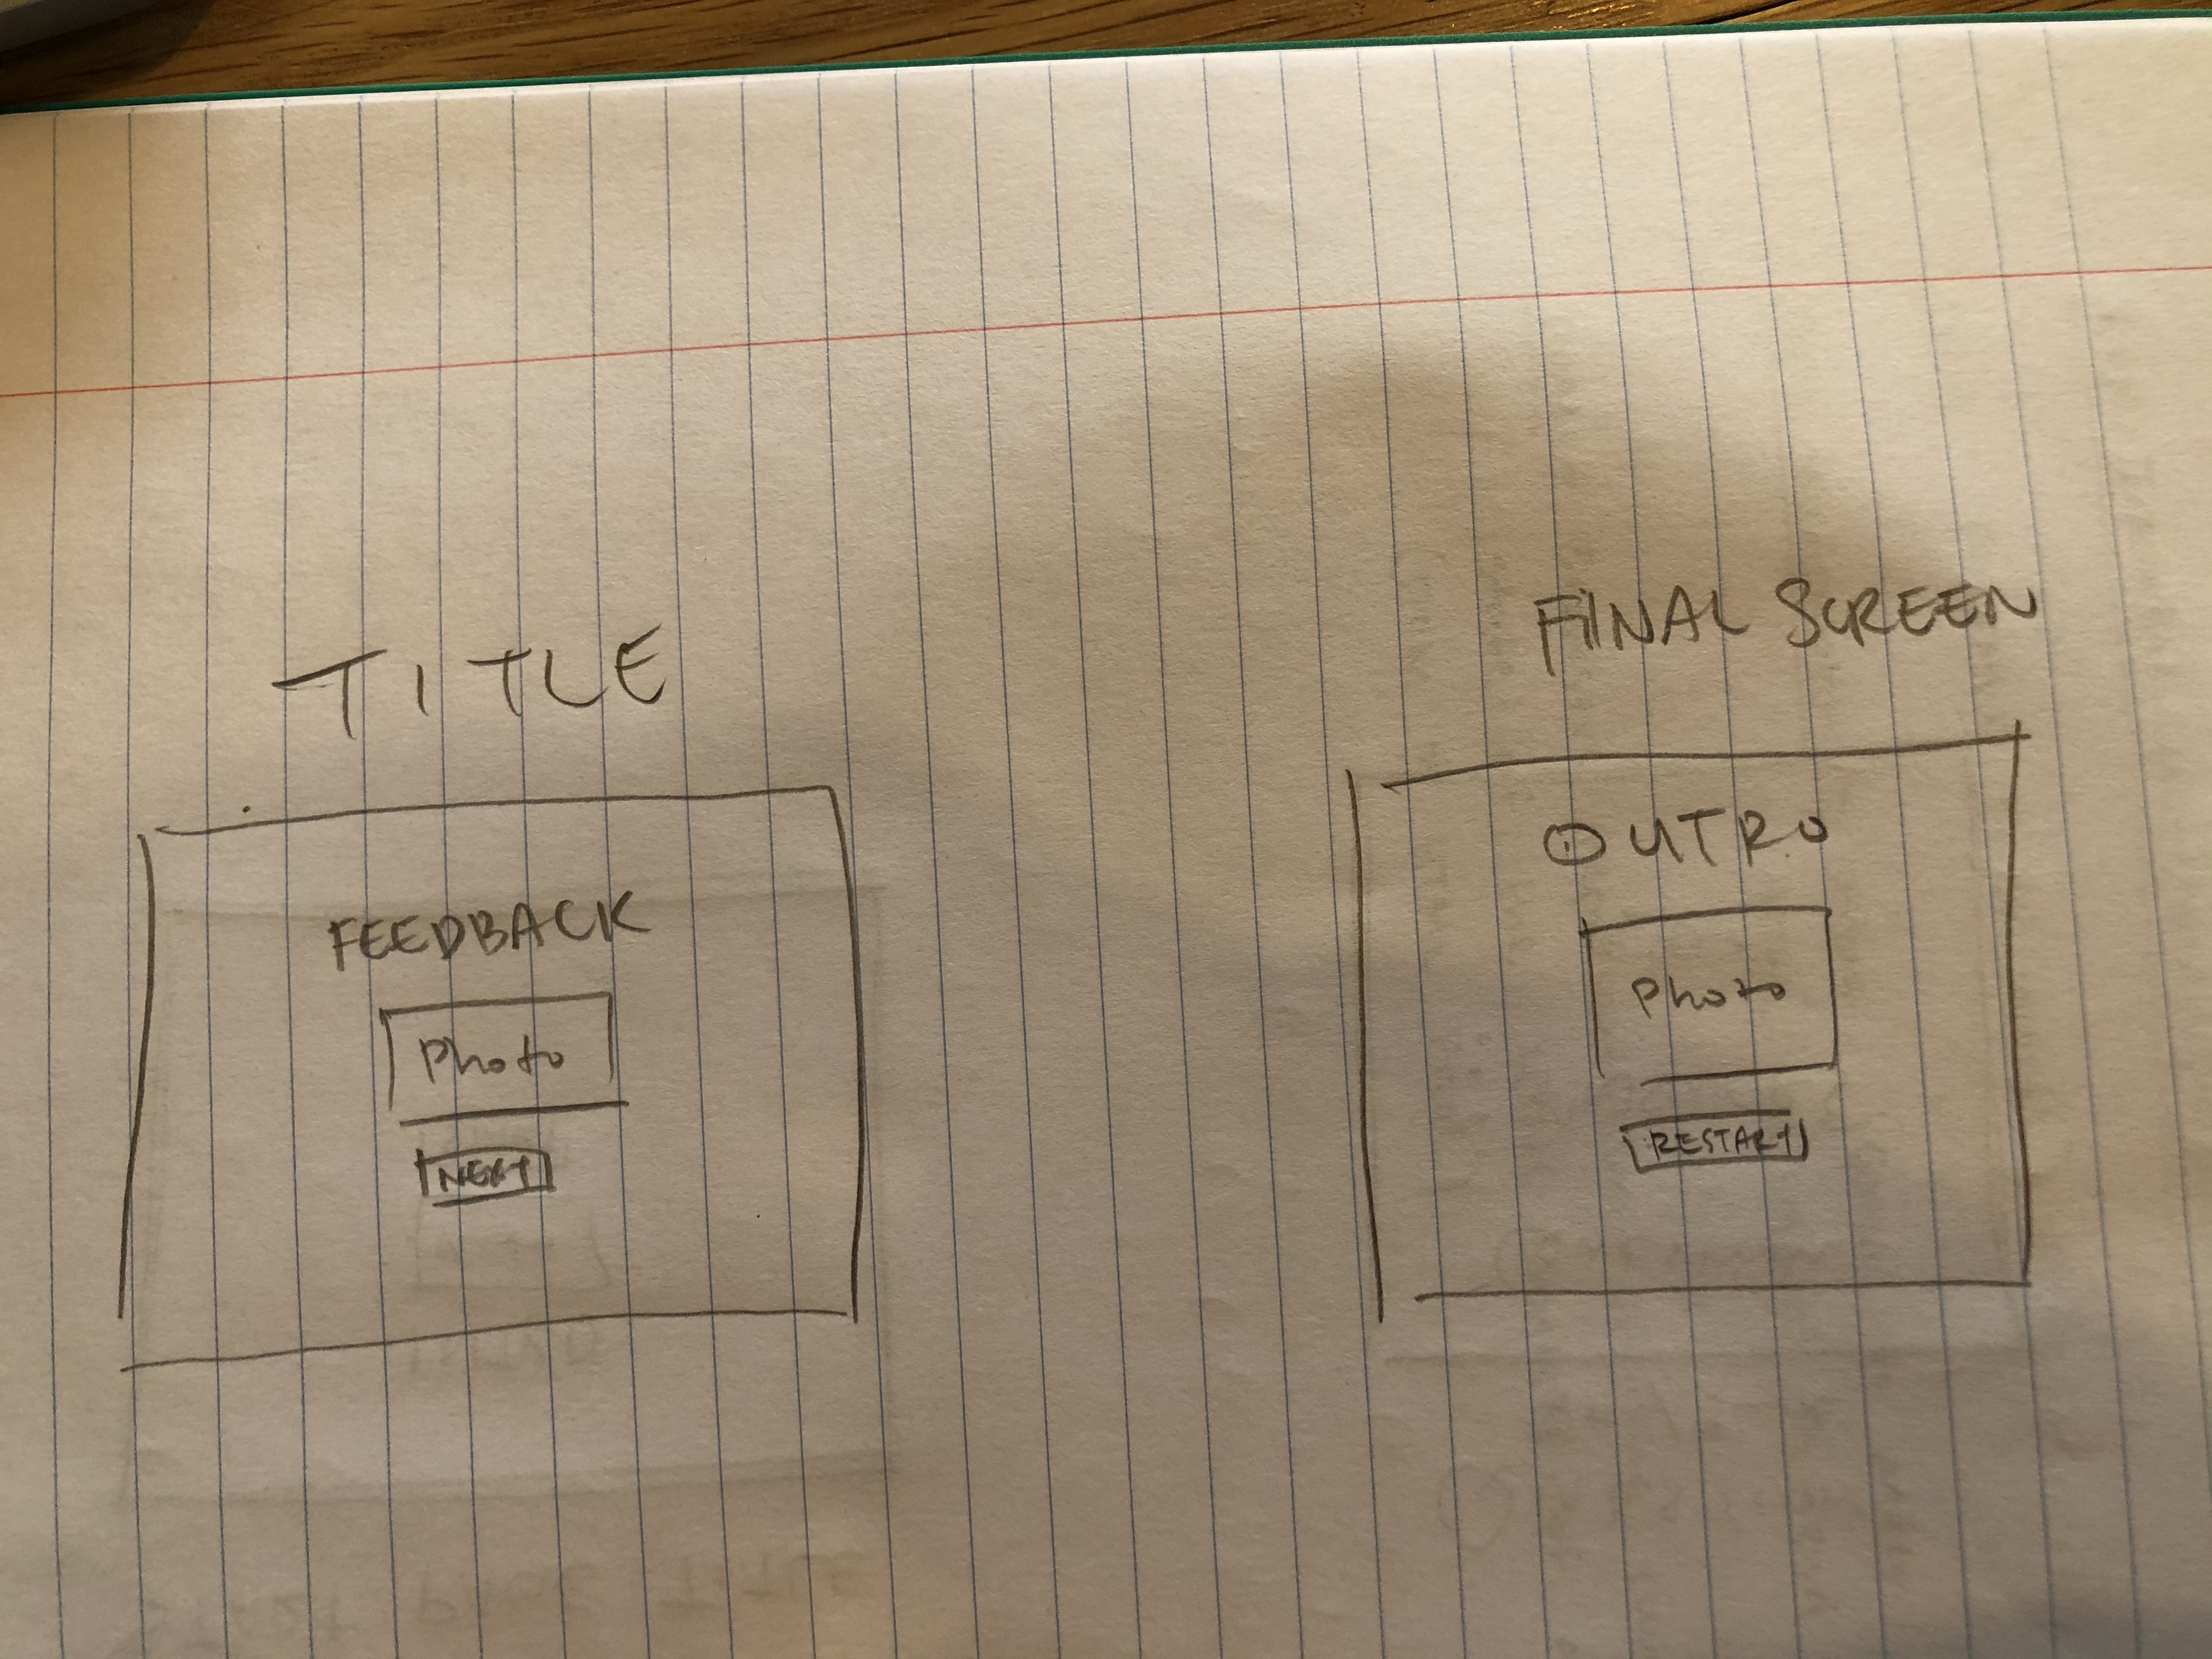 TITLE
FEEDBACK
Photo
NEXT
FINAL SCREEN
OUTRO
Photo
RESTART